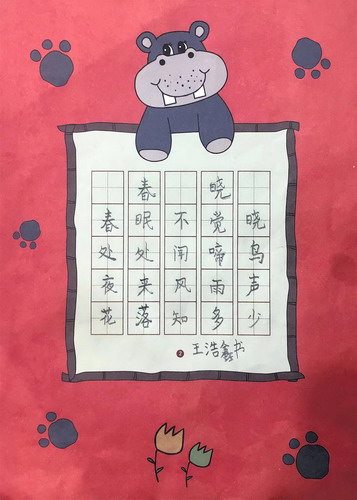 春晓
春眠不觉晓
处处闻啼鸟
夜来风雨声
花落知多少
王浩鑫书